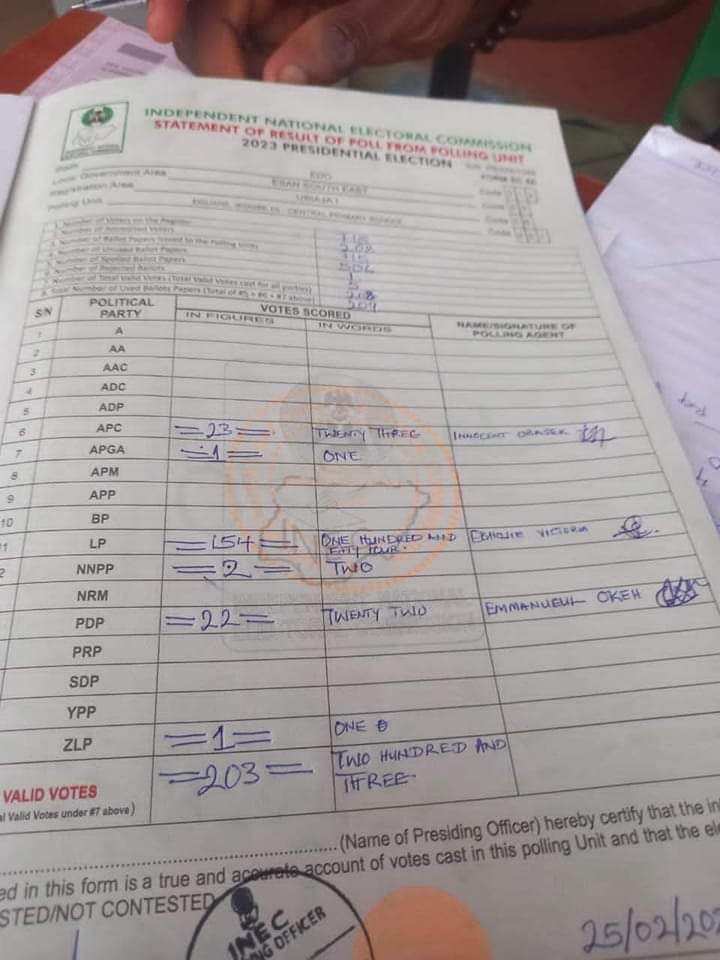 INDEPENDENT NATIONAL ELECTORAL COMMISSION
STATEMENT OF RESULT OF POLL FROM POLLING UNIT
2023 PRESIDENTIAL ELECTION
State EDO
Local Government Area ESAN SOUTH EAST Code
Registration Area UBIAJA I Code
Polling Unit CENTRAL PRIMARY SCHOOL Code
1. Number of Voters on the Register
2. Number of Accredited Voters
3. Number of Ballot Papers Issued to the Polling Unit
4. Number of Unused Ballot Papers
5. Number of Spoiled Ballot Papers
6. Number of Rejected Ballots
7. Number of Total Valid Votes (Total Valid Votes cast for all parties)
8. Total Number of Used Ballots Papers (Total of #5 + #6 + #7 above)
S/N POLITICAL PARTY VOTES SCORED NAME/SIGNATURE OF POLLING AGENT
IN FIGURES IN WORDS
1 A
2 AA
3 AAC
4 ADC
5 ADP
6 APC =23= TWENTY THREE INNOCENT
7 APGA =1= ONE
8 APM
9 APP
10 BP
11 LP =154= ONE HUNDRED AND FIFTY FOUR VICTORIA
2 NNPP =2= TWO
NRM
PDP =22= TWENTY TWO EMMANUEUL OKEH
PRP
SDP
YPP
ZLP =1= ONE
VALID VOTES =203= TWO HUNDRED AND THREE
al Valid Votes under #7 above)
(Name of Presiding Officer) hereby certify that the in
ed in this form is a true and accurate account of votes cast in this polling Unit and that the ele
STED/NOT CONTESTED
INEC
NG OFFICER
25/02/202